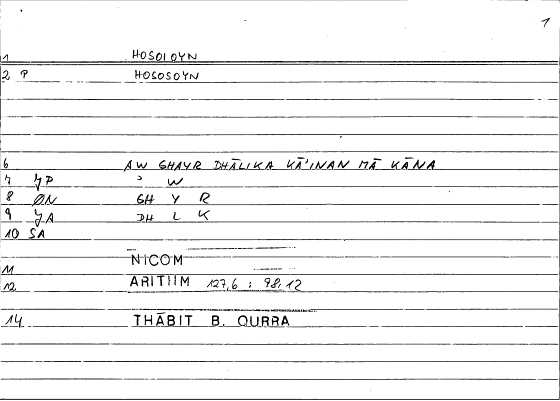 1
1 HOSOIOYN
2 P HOSOSOYN
6 AW GHAYR DHĀLIKA KĀ'INAN MĀ KĀNA
7 JP ' W
8 ØN GH Y R
9 JA DH L K
10 SA
11 NICOM
12 ARITHM 127,6 : 98,12
14 THĀBIT B. QURRA